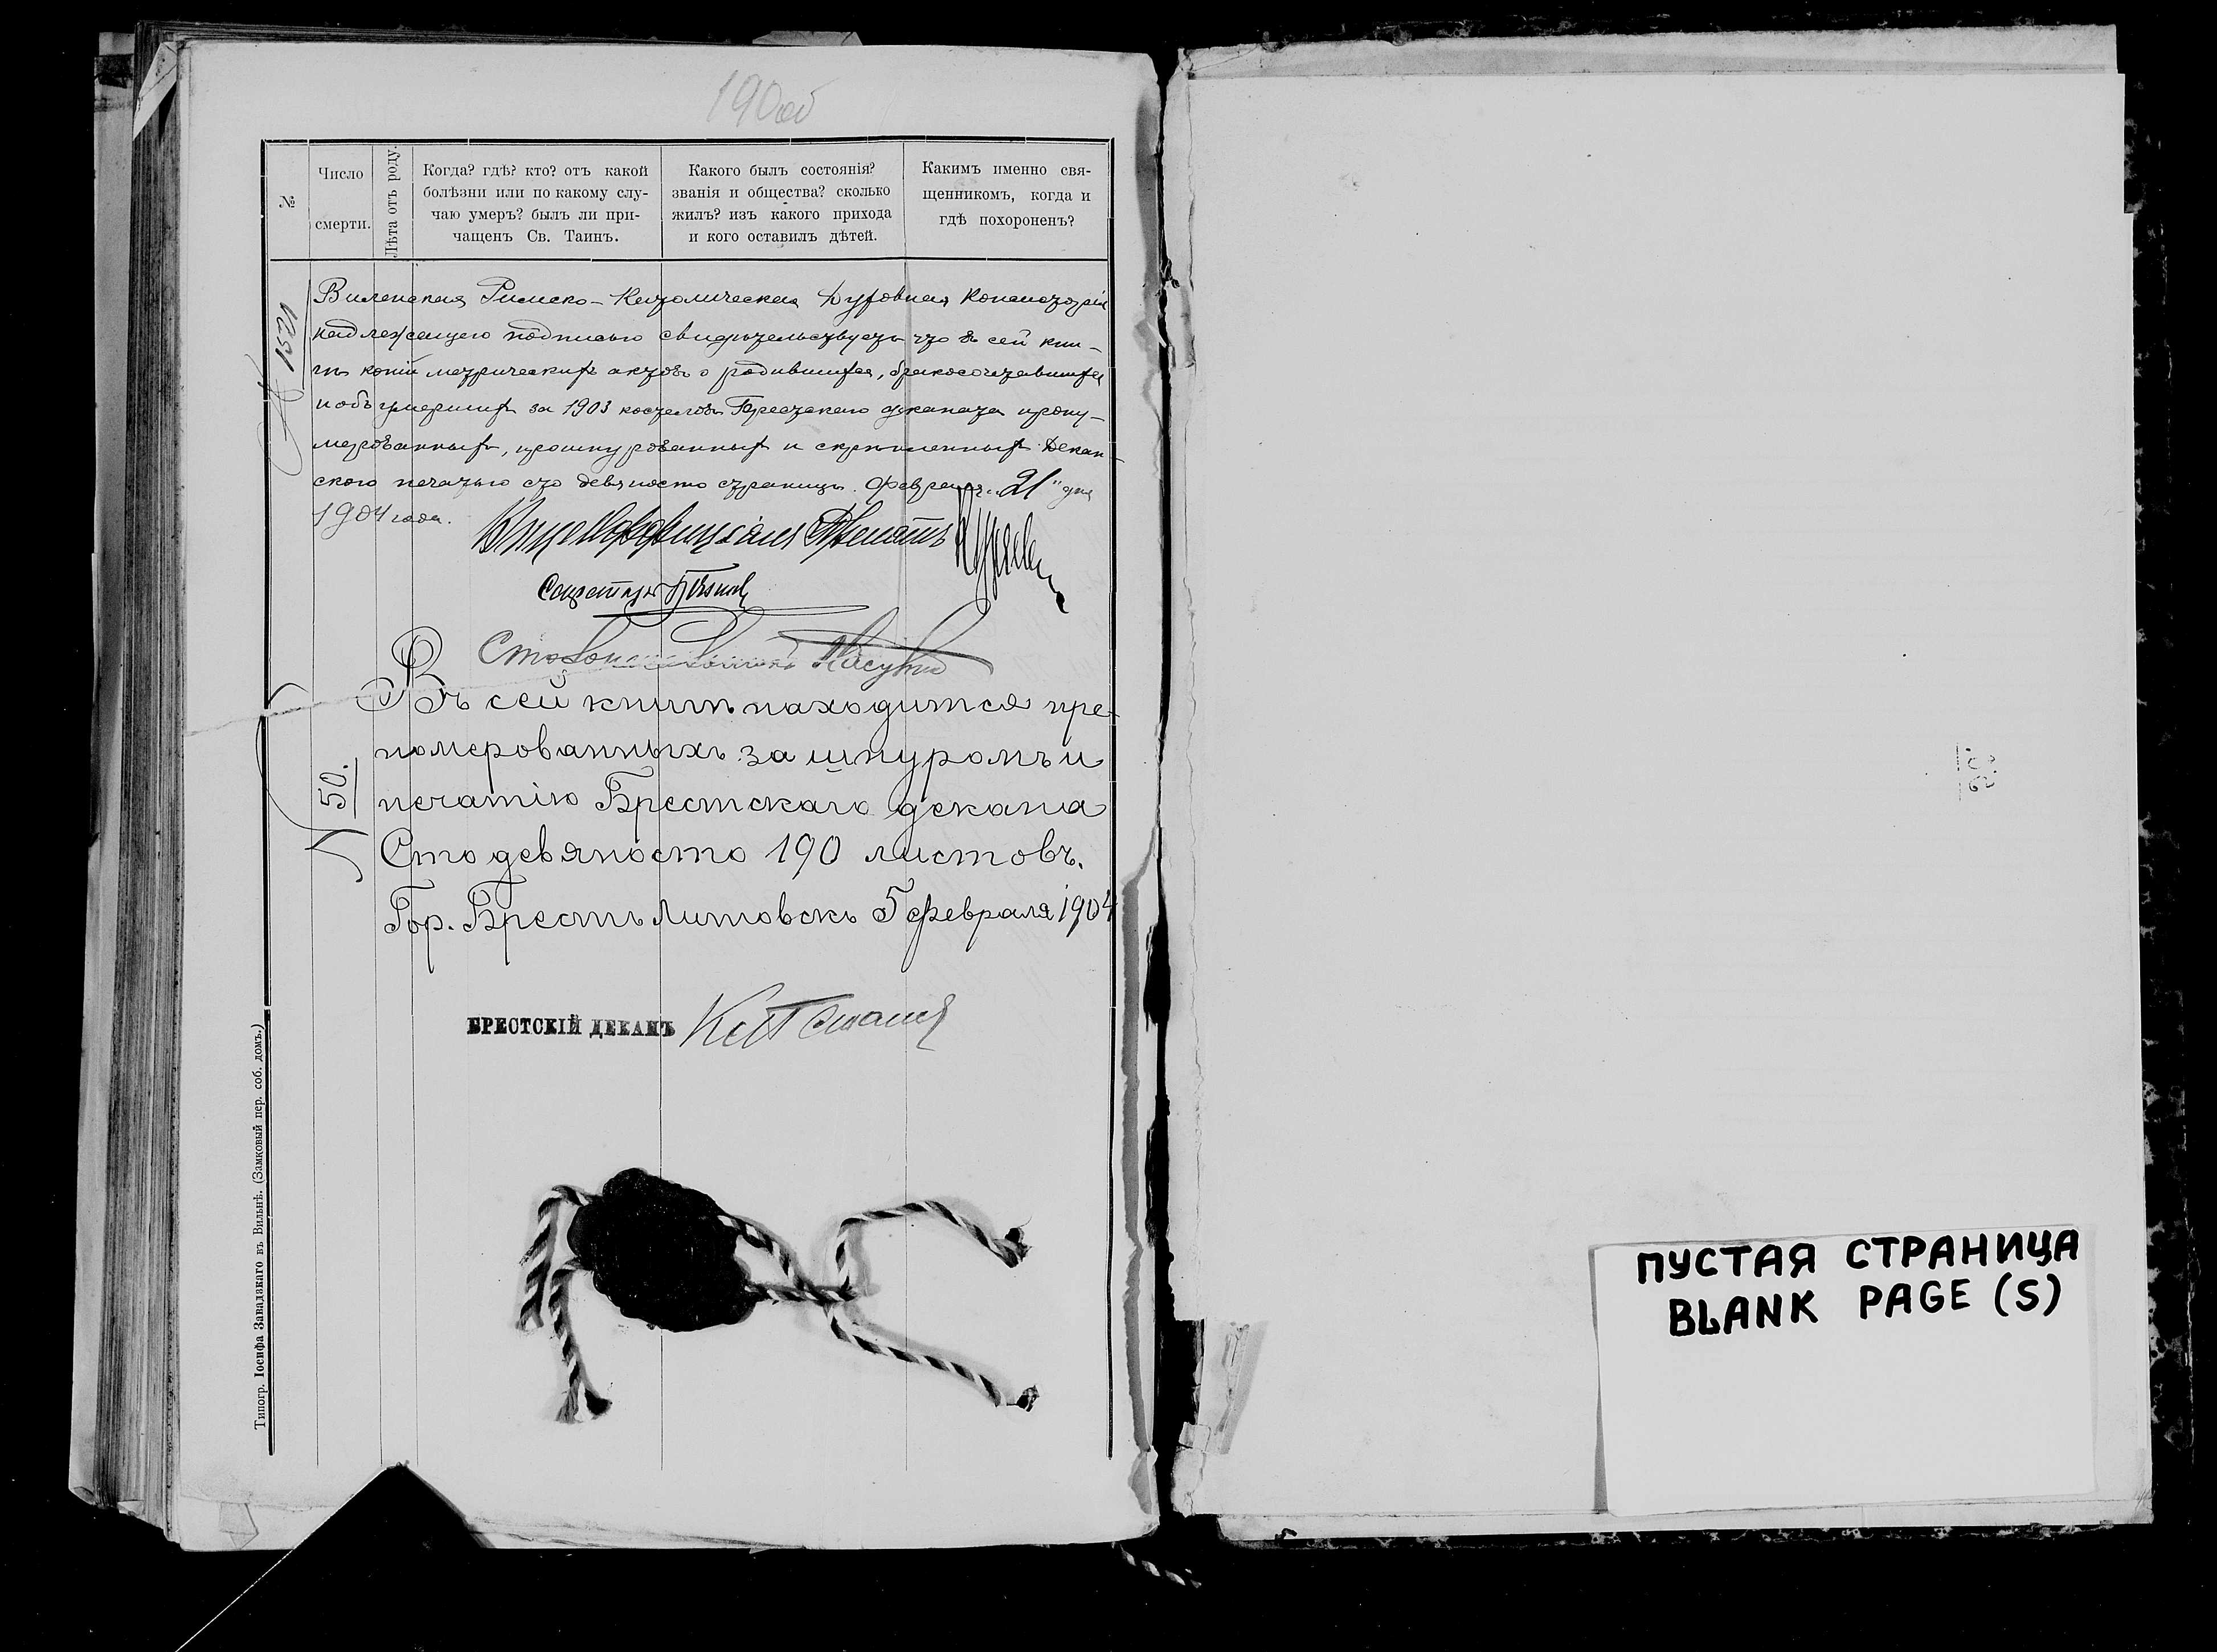 190об
№
Число
смерти.
Лѣта отъ роду.
Когда? гдѣ? кто? отъ какой
болѣзни или по какому слу-
чаю умеръ? былъ ли при-
чащенъ Св. Таинъ.
Какого былъ состоянія?
званія и общества? сколько
жилъ? изъ какого прихода
и кого оставилъ дѣтей.
Какимъ именно свя-
щенникомъ, когда и
гдѣ похороненъ?
Виленская Римско-Католическая Духовная Консисторія
надлежащею подписью свидѣтельствуетъ что въ сей кни-
гѣ копій метрическихъ актовъ о родившихся, бракосочетавшихся
и объ умершихъ за 1903 костеловъ Брестскаго деканата прону-
мерованныхъ, прошнурованныхъ и скрѣпленныхъ Декан-
скою печатью сто девяносто страницъ. Февраля „21" дня
1904 года.
Секретарь
Столоначальникъ
Въ сей книгѣ находится пре-
номерованныхъ за шнуромъ и
печатію Брестскаго декана
Сто девяносто 190 листовъ.
Гор. Брестъ Литовскъ 5 февраля 1904
№ 50.
БРЕСТСКІЙ ДЕКАНЪ
Типогр. Іосифа Завадзкаго въ Вильнѣ. (Замковый пер. соб. домъ.)
ПУСТАЯ СТРАНИЦА
BLANK PAGE (S)